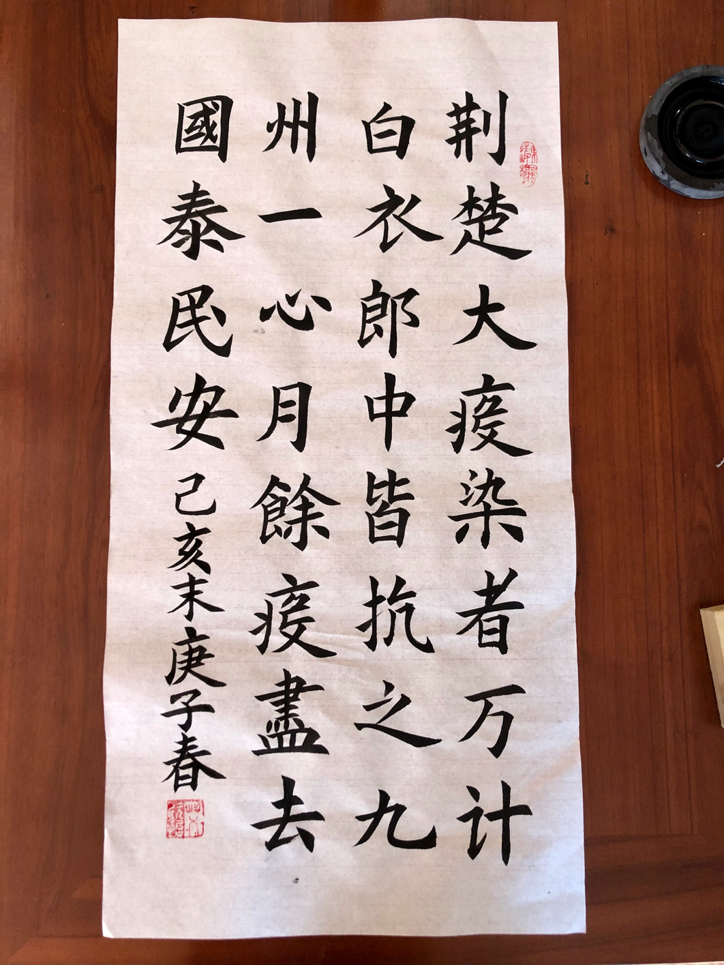 荆楚大疫染者万计
白衣郎中皆抗之九
州一心月餘疫盡去
國泰民安己亥末庚子春